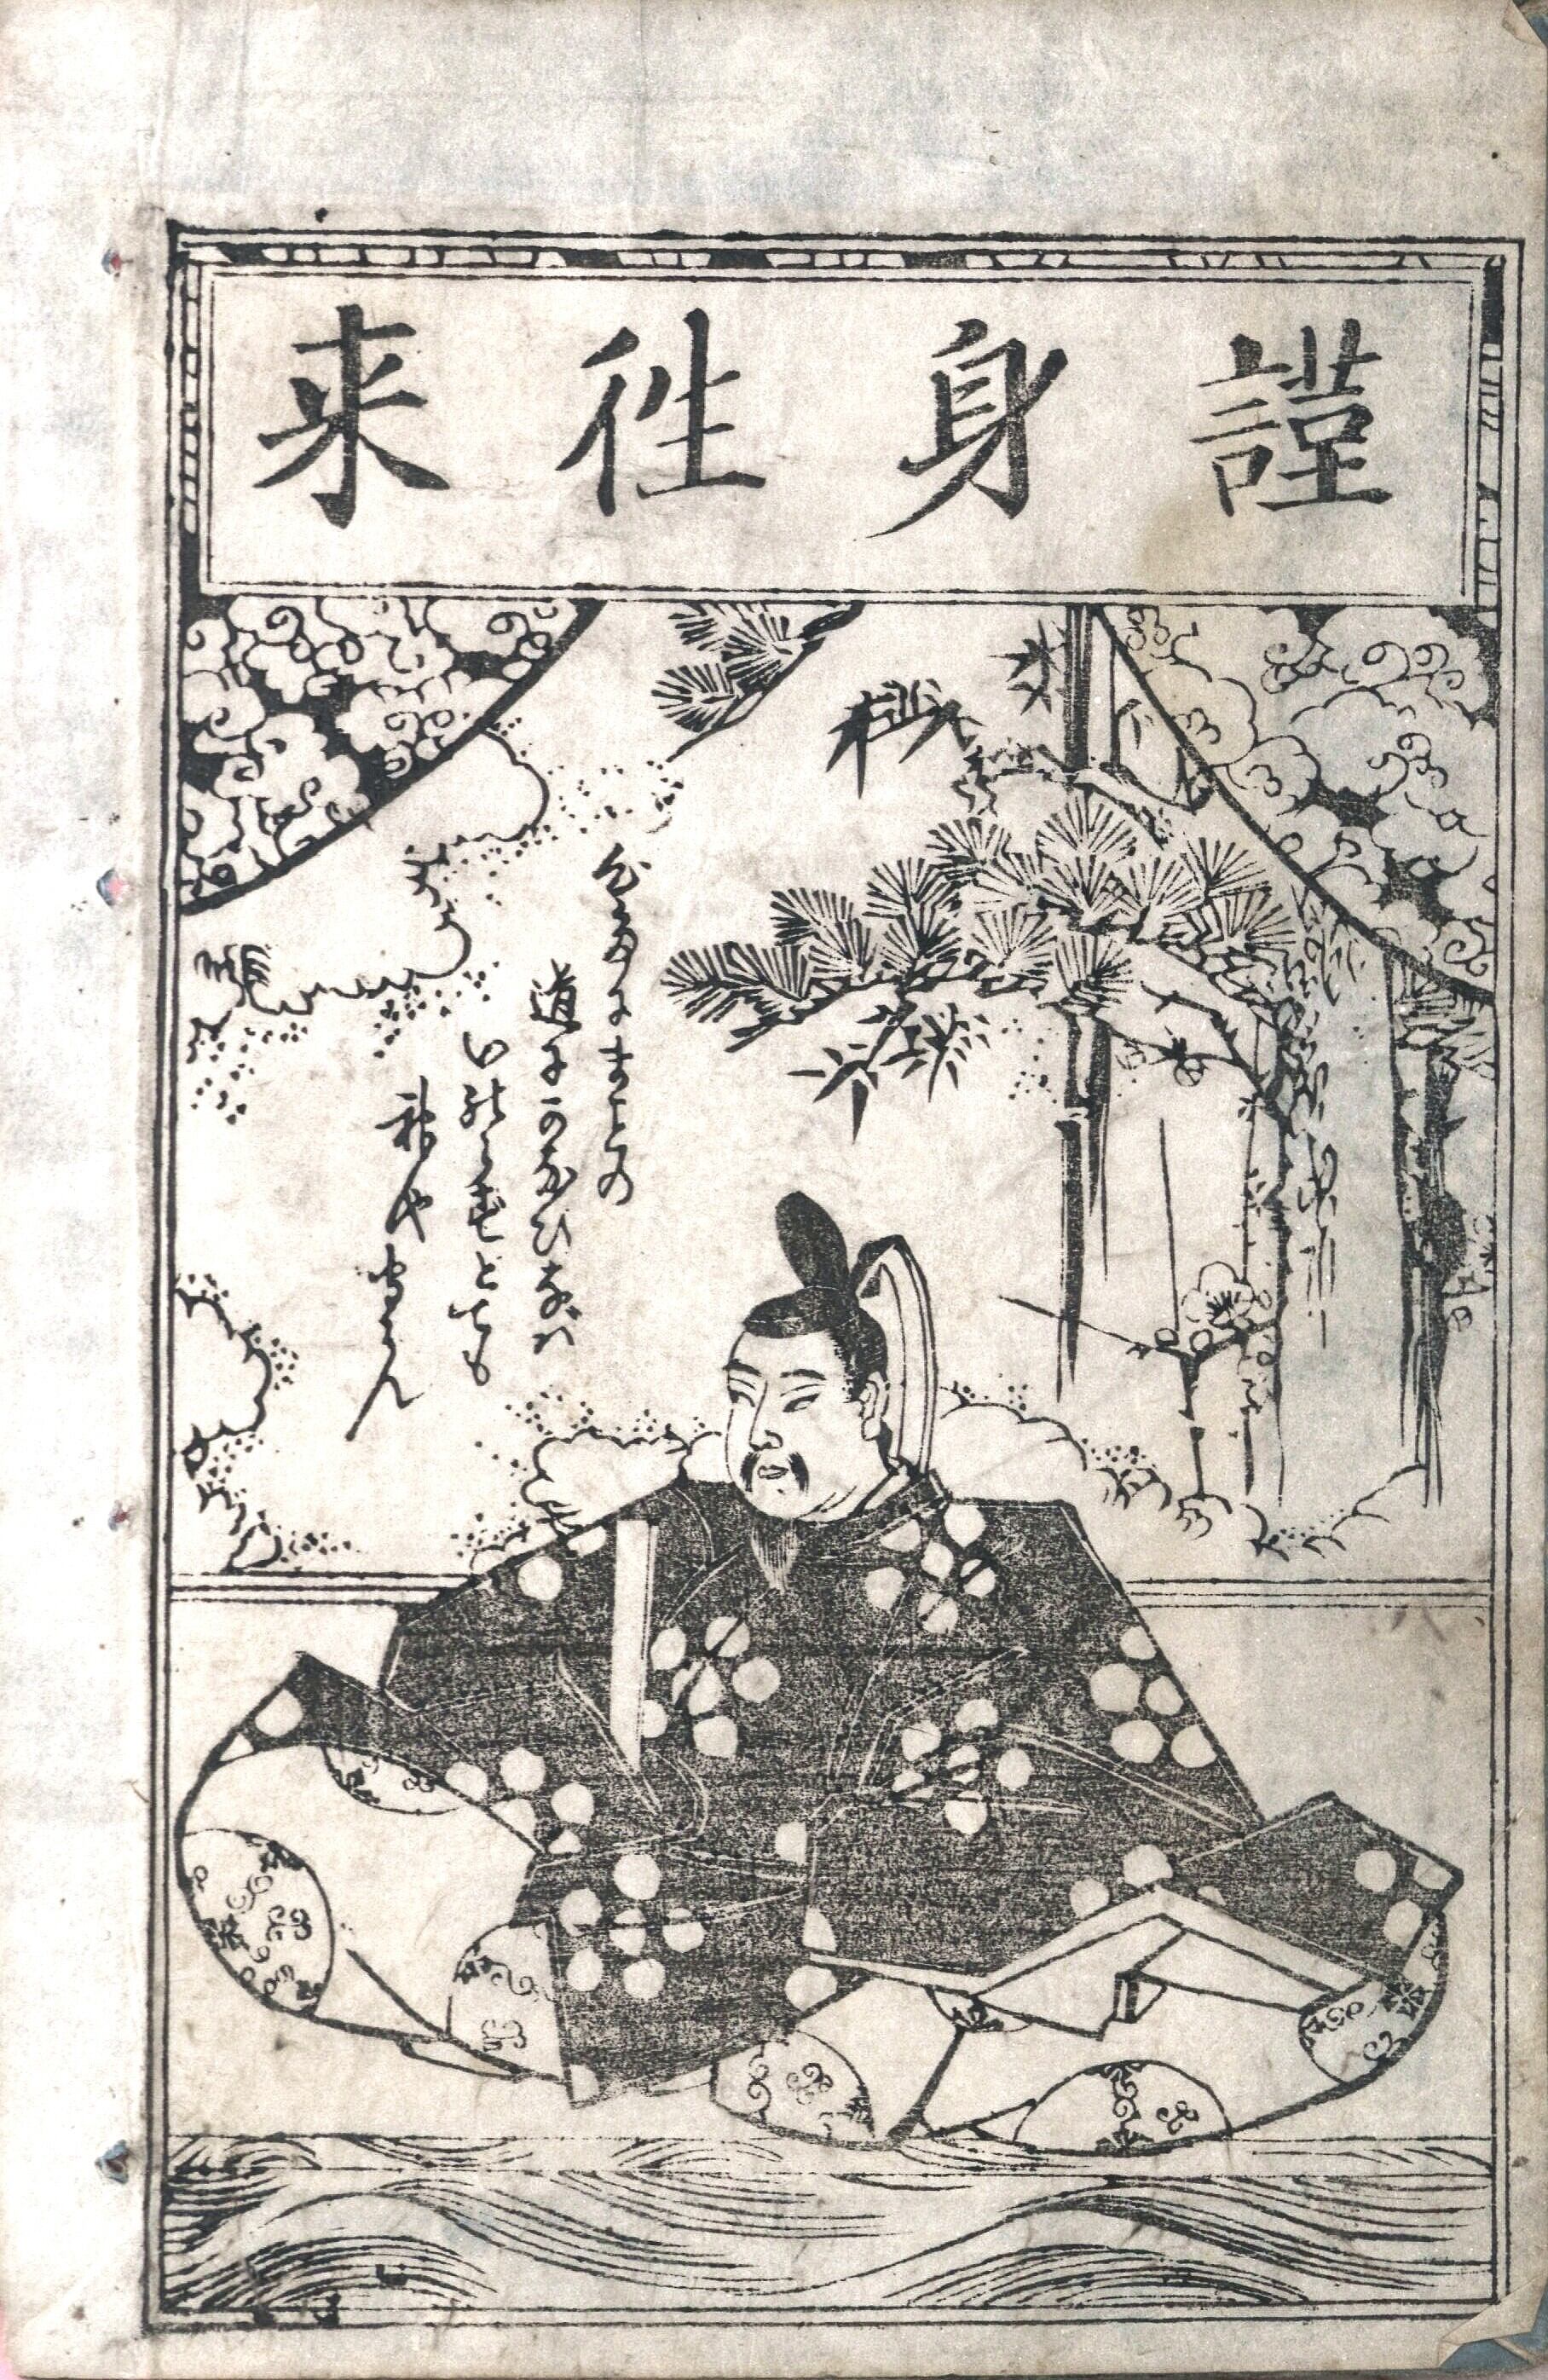 謹身徃来
心だにまことの
道にかなひなば
いのらずとても
神やまもらん